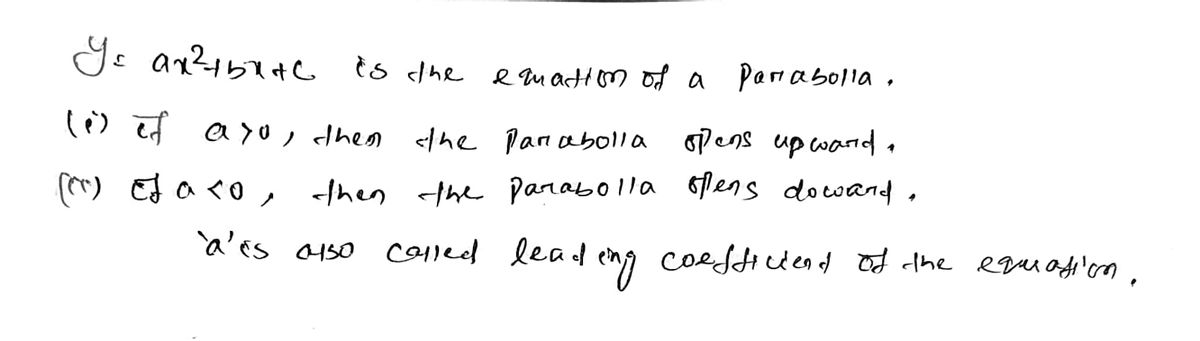 y = ax²+bx+c is the equation of a Parabolla.
(i) if a>0, then the Parabolla opens upward.
(ii) if a<0, then the Parabolla opens doward.
'a' is also called leading coefficient of the equation.